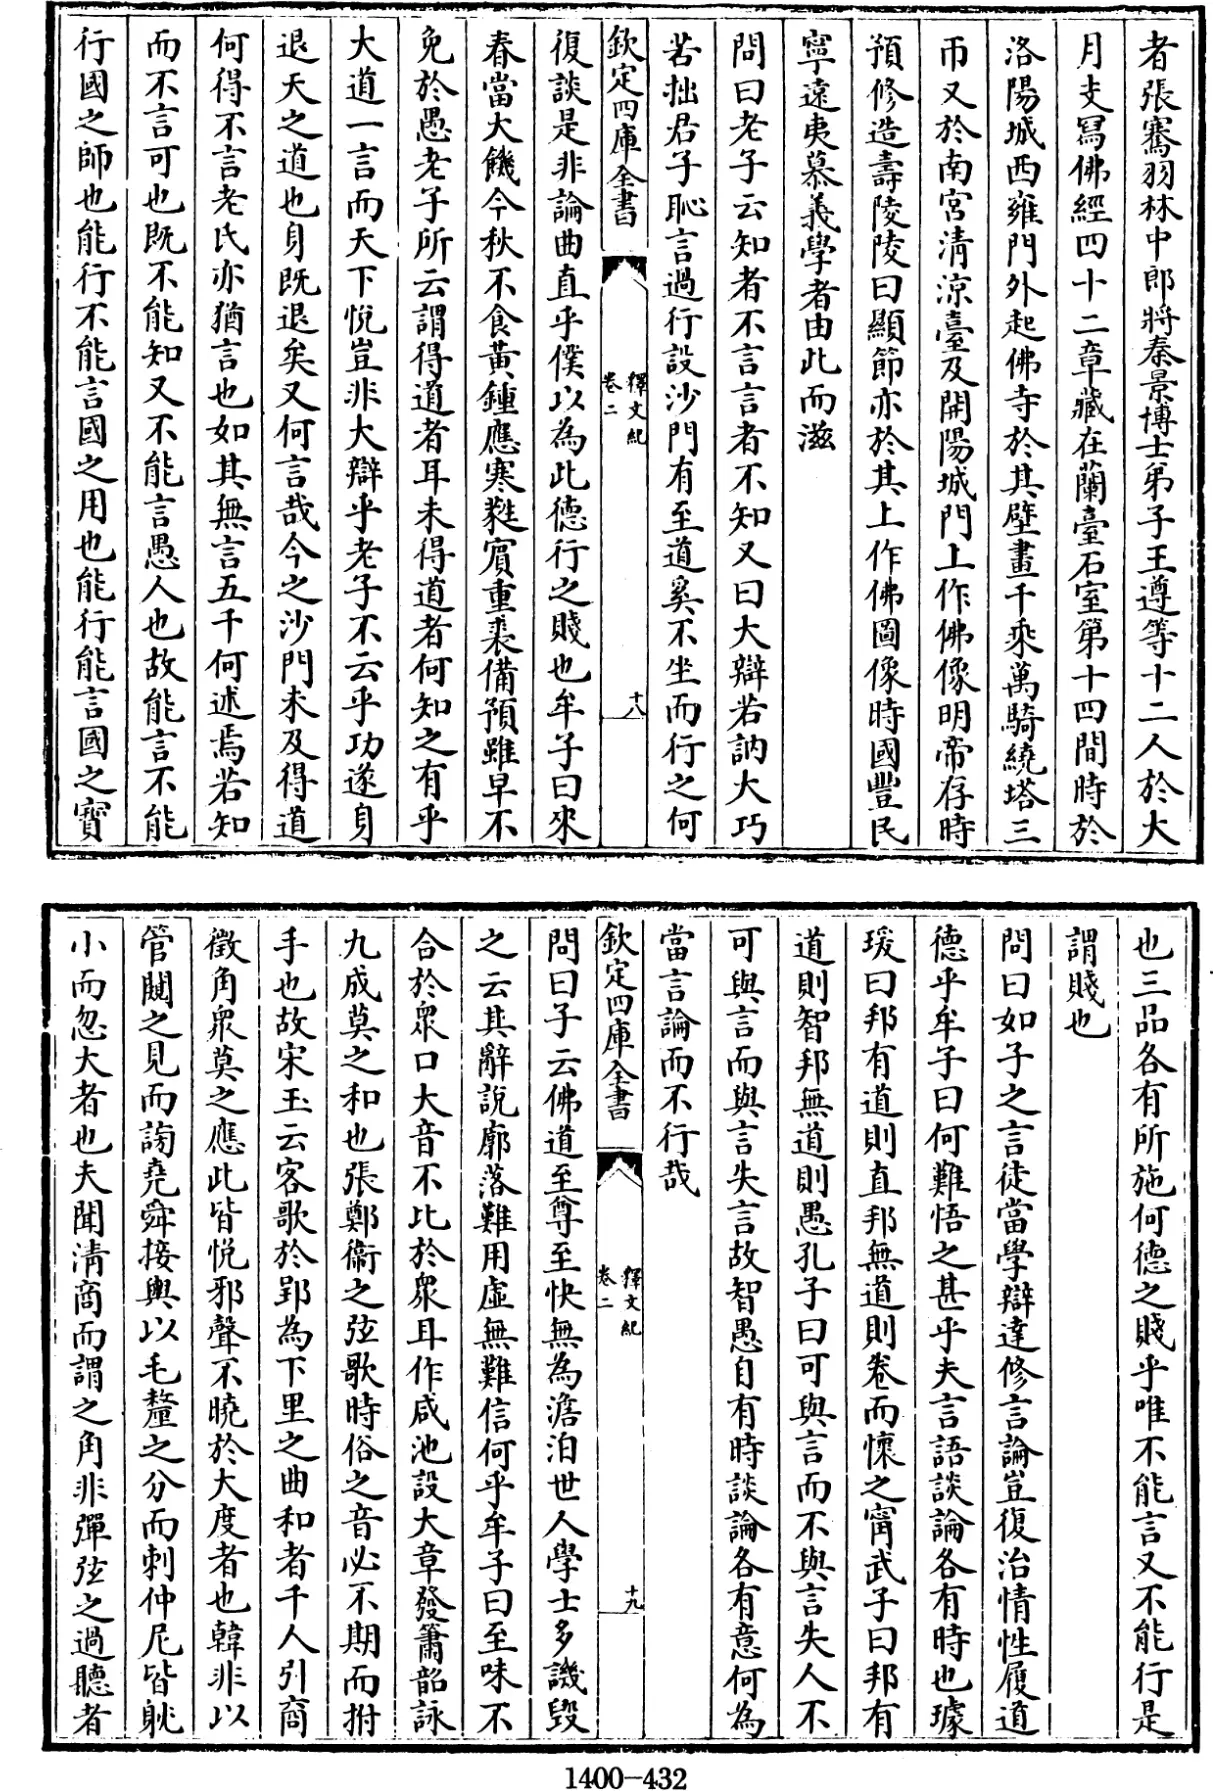 者張騫羽林中郎將秦景博士弟子王遵等十二人於大
月支冩佛經四十二章藏在蘭臺石室第十四間時於
洛陽城西雍門外起佛寺於其壁畫千乘萬騎繞塔三
帀又於南宮清涼臺及開陽城門上作佛像明帝存時
預修造壽陵陵曰顯節亦於其上作佛圖像時國豐民
寧遠夷慕義學者由此而滋
問曰老子云知者不言言者不知又曰大辯若訥大巧
若拙君子恥言過行設沙門有至道奚不坐而行之何
欽定四庫全書
釋文紀
卷二
十八
復談是非論曲直乎僕以為此德行之賤也牟子曰來
春當大饑今秋不食黃鍾應寒蕤賔重裘備預雖早不
免於愚老子所云謂得道者耳未得道者何知之有乎
大道一言而天下悅豈非大辯乎老子不云乎功遂身
退天之道也身既退矣又何言哉今之沙門未及得道
何得不言老氏亦猶言也如其無言五千何述焉若知
而不言可也既不能知又不能言愚人也故能言不能
行國之師也能行不能言國之用也能行能言國之寳
也三品各有所施何德之賤乎唯不能言又不能行是
謂賤也
問曰如子之言徒當學辯達修言論豈復治情性履道
德乎牟子曰何難悟之甚乎夫言語談論各有時也璩
瑗曰邦有道則直邦無道則卷而懷之甯武子曰邦有
道則智邦無道則愚孔子曰可與言而不與言失人不
可與言而與言失言故智愚自有時談論各有意何為
當言論而不行哉
欽定四庫全書
釋文紀
卷二
十九
問曰子云佛道至尊至快無為澹泊世人學士多譏毀
之云其辭說廓落難用虛無難信何乎牟子曰至味不
合於衆口大音不比於衆耳作咸池設大章發簫韶詠
九成莫之和也張鄭衛之弦歌時俗之音必不期而拊
手也故宋玉云客歌於郢為下里之曲和者千人引商
徵角衆莫之應此皆悅邪聲不曉於大度者也韓非以
管闚之見而謭堯舜接輿以毛釐之分而刺仲尼皆躭
小而忽大者也夫聞清商而謂之角非彈弦之過聽者
1400-432